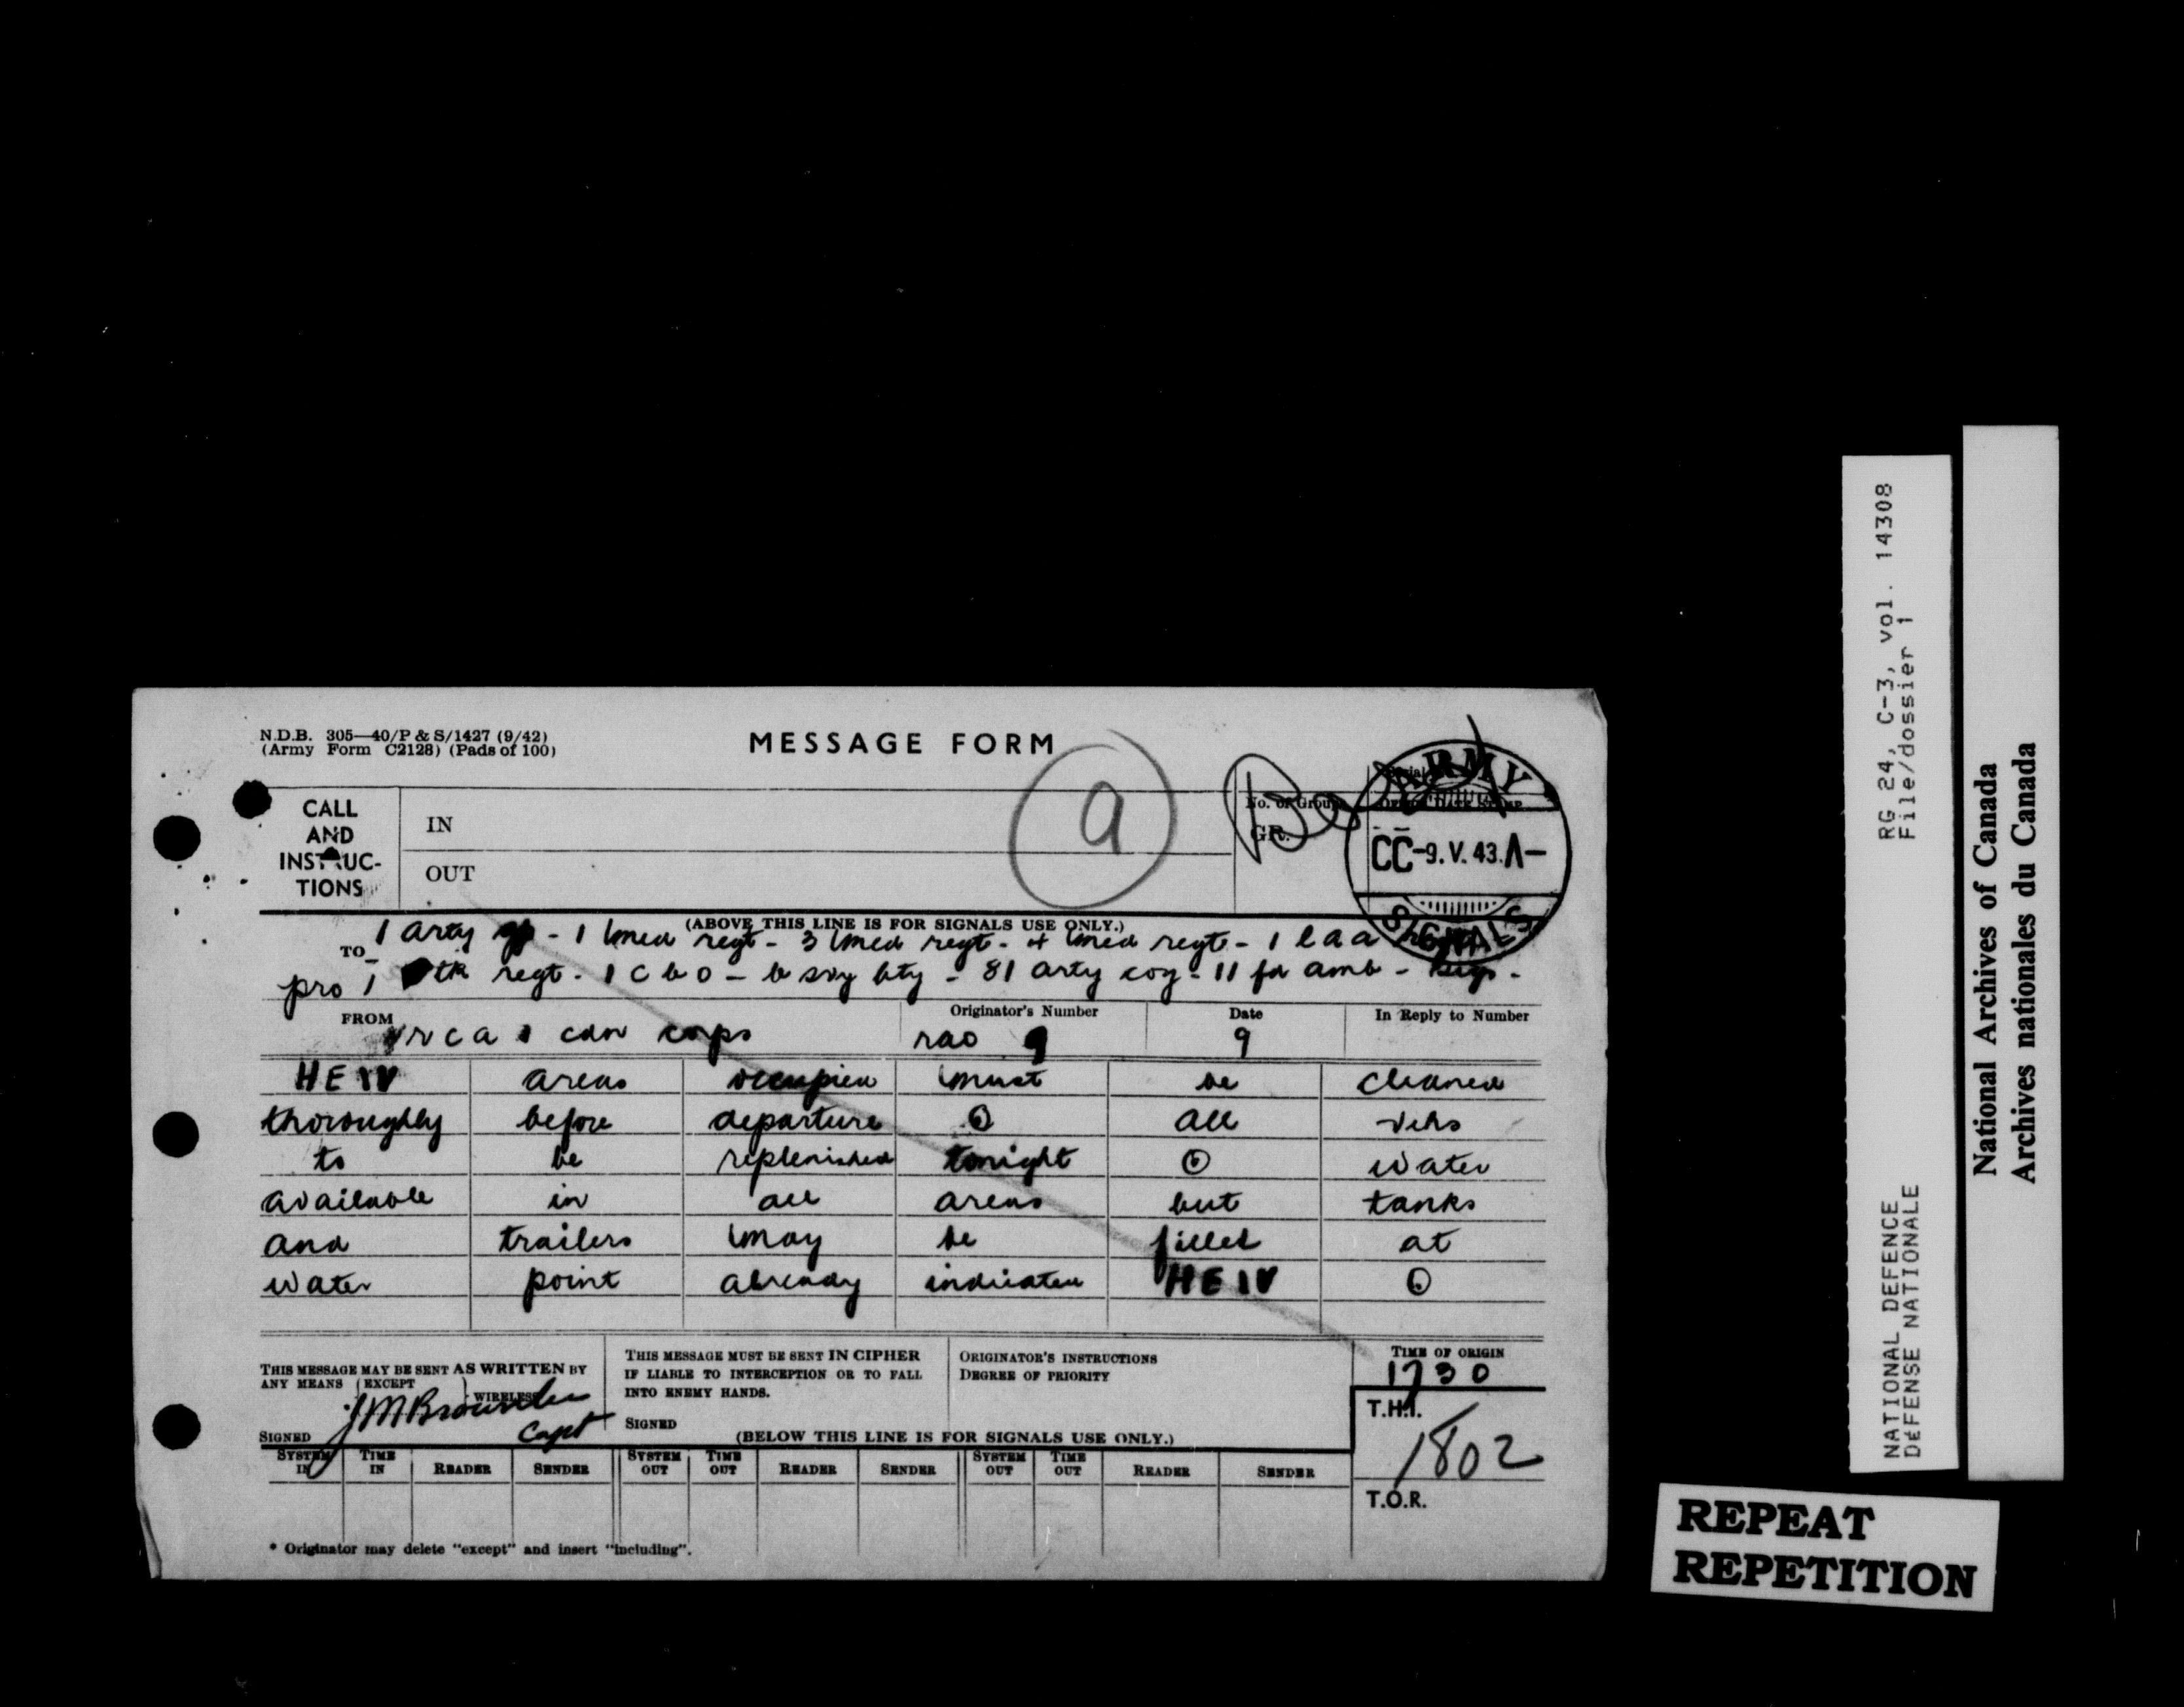 N.D.B. 305—40/P & S/1427 (9/42)
(Army Form C2128) (Pads of 100)
MESSAGE FORM
CALL AND INSTRUCTIONS
IN
OUT
a
No. of Groups
GR.
ARMY
CC-9.V.43.A-
SIGNALS
(ABOVE THIS LINE IS FOR SIGNALS USE ONLY.)
TO 1 arty gp - 1 med regt - 3 med regt - 4 med regt - 1 laa regt
pro 1 tk regt - 1 c b o - b svy bty - 81 arty coy - 11 fd amb -
FROM rca 1 cdn corps
Originator's Number rao 9
Date 9
In Reply to Number
HEIV areas occupied must be cleaned
thoroughly before departure ⊙ all vehs
to be replenished tonight ⊙ water
available in all areas but tanks
and trailers may be filled at
water point already indicated HEIV ⊙
THIS MESSAGE MAY BE SENT AS WRITTEN BY
ANY MEANS (EXCEPT) WIRELESS
SIGNED Capt
THIS MESSAGE MUST BE SENT IN CIPHER
IF LIABLE TO INTERCEPTION OR TO FALL
INTO ENEMY HANDS.
SIGNED
ORIGINATOR'S INSTRUCTIONS
DEGREE OF PRIORITY
TIME OF ORIGIN
1730
T.H.I.
1802
T.O.R.
(BELOW THIS LINE IS FOR SIGNALS USE ONLY.)
SYSTEM IN TIME IN READER SENDER SYSTEM OUT TIME OUT READER SENDER SYSTEM OUT TIME OUT READER SENDER
* Originator may delete "except" and insert "including".
RG 24, C-3, vol. 14308
File/dossier 1
NATIONAL DEFENCE
DÉFENSE NATIONALE
National Archives of Canada
Archives nationales du Canada
REPEAT
REPETITION